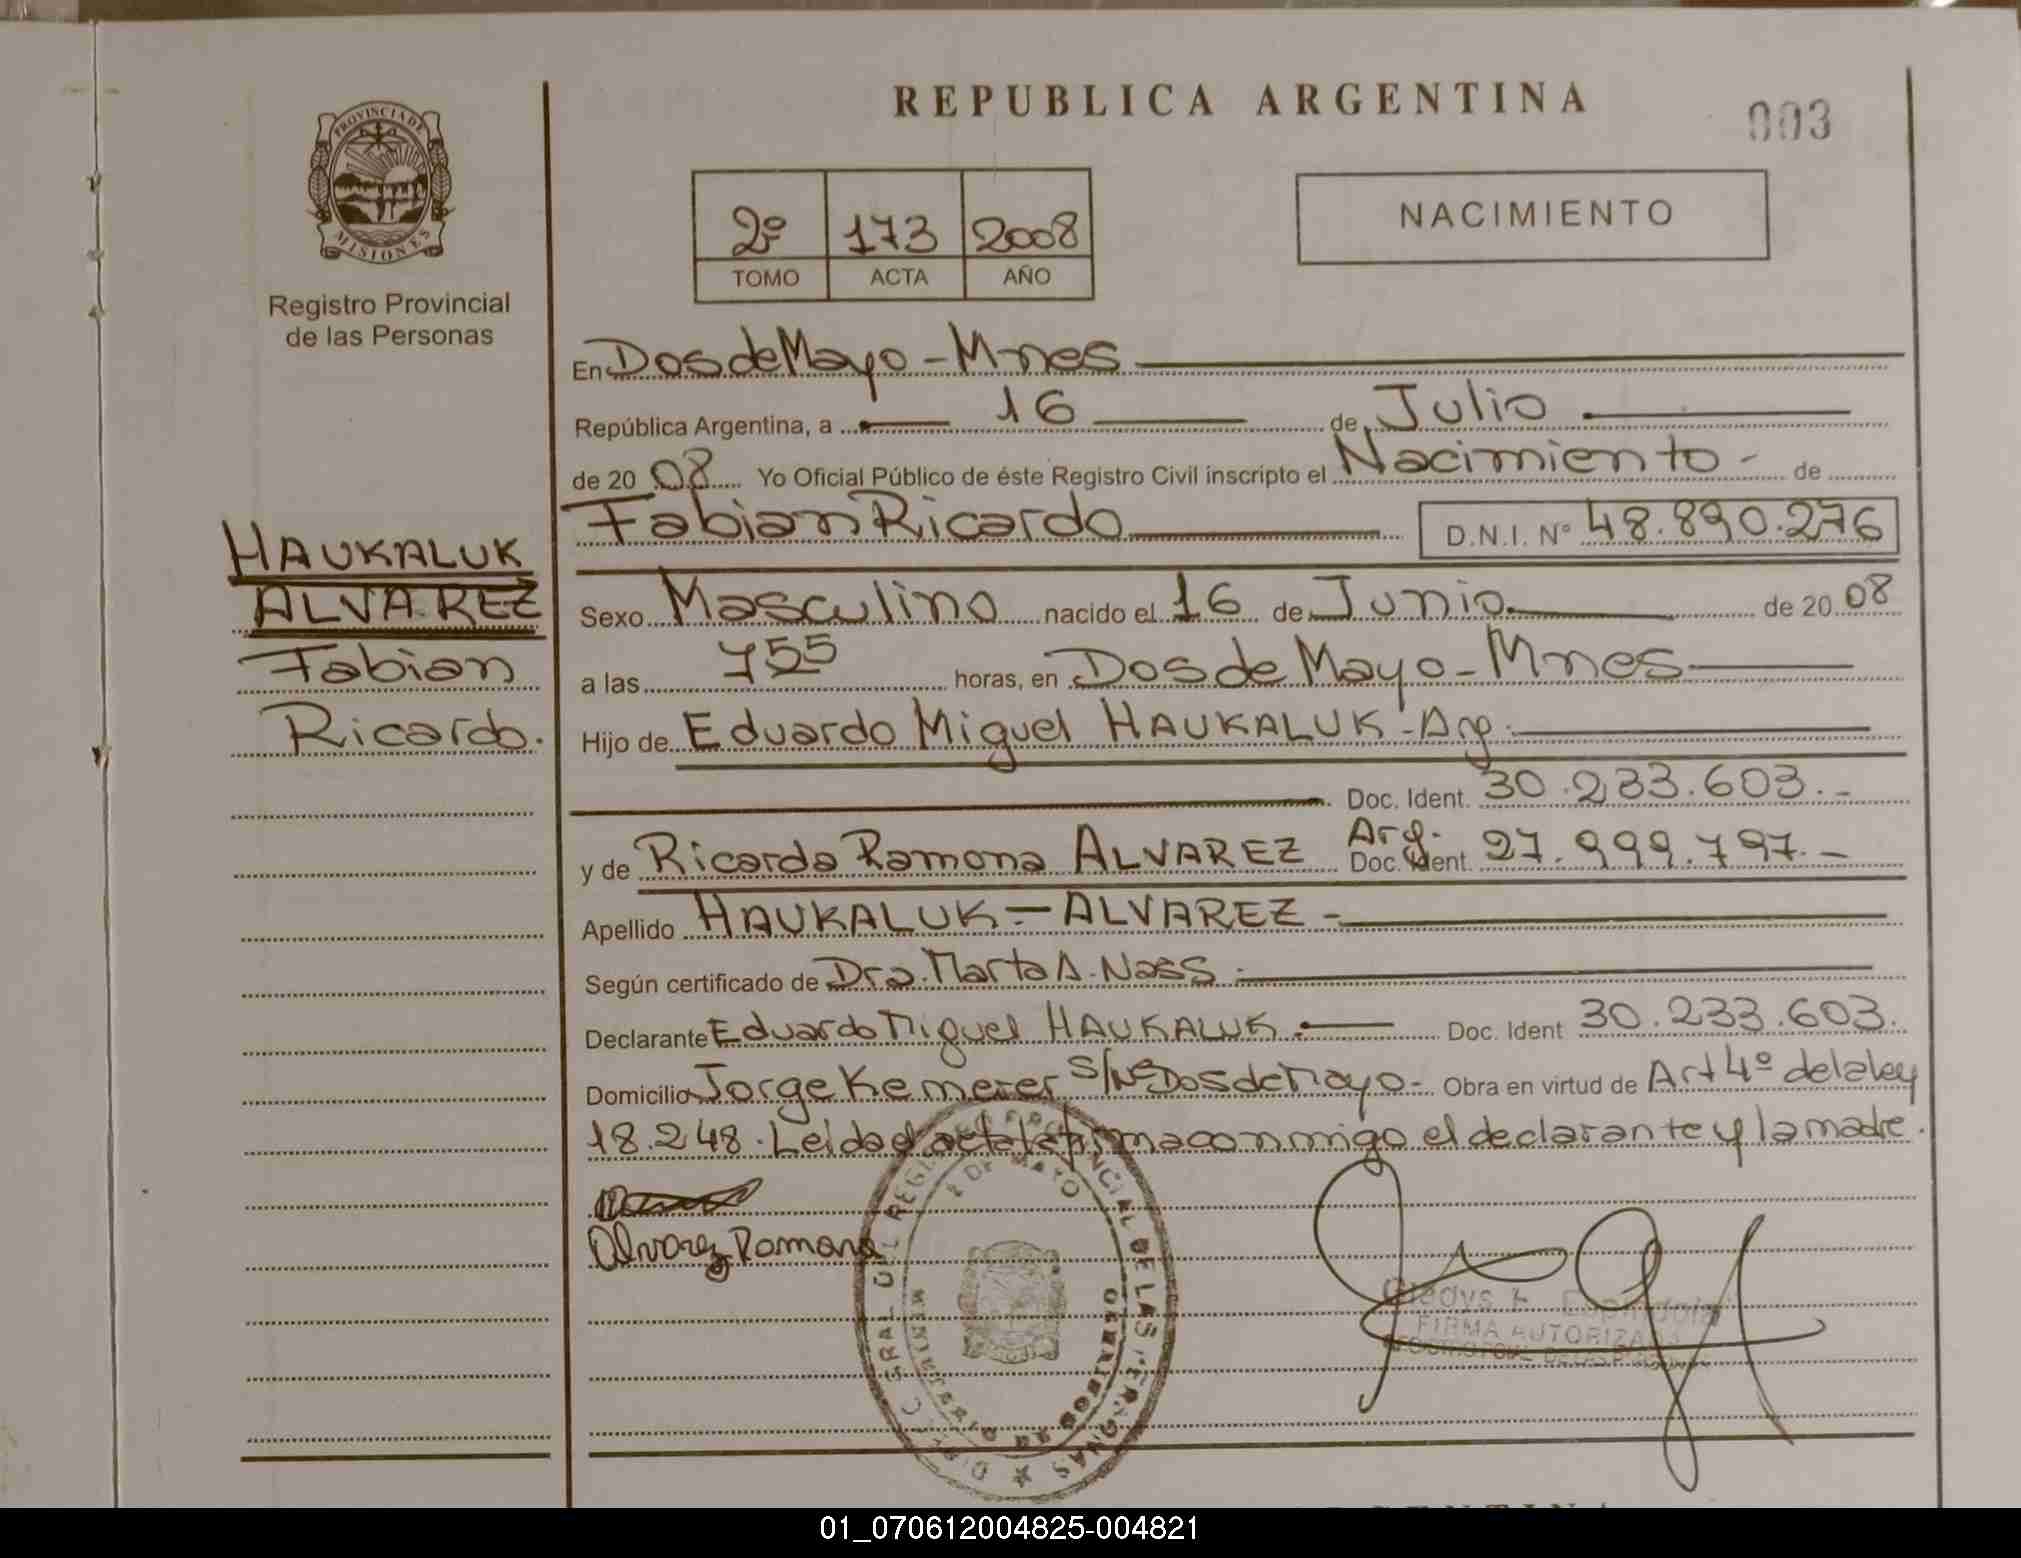 REPUBLICA ARGENTINA
003
PROVINCIA DE
MISIONES
Registro Provincial
de las Personas
2º 173 2008
TOMO ACTA AÑO
NACIMIENTO
En Dos de Mayo - Mnes
República Argentina, a 16 de Julio
de 20 08 Yo Oficial Público de éste Registro Civil inscripto el Nacimiento - de
Fabian Ricardo D.N.I. Nº 48.890.276
HAUKALUK
ALVAREZ
Fabian
Ricardo.
Sexo Masculino nacido el 16 de Junio de 20 08
a las 755 horas, en Dos de Mayo - Mnes
Hijo de Eduardo Miguel HAUKALUK - Arg.
Doc. Ident. 30.233.603.-
y de Ricarda Ramona ALVAREZ Arg. Doc. Ident. 27.999.797.-
Apellido HAUKALUK - ALVAREZ -
Según certificado de Dra. Marta A. Nass.
Declarante Eduardo Miguel HAUKALUK. Doc. Ident 30.233.603.
Domicilio Jorge Kemerer S/Nº Dos de Mayo - Obra en virtud de Art 4º de la ley
18.248. Leida el acta la firma conmigo el declarante y la madre.
Alvarez Ramona
2 DE MAYO
FIRMA AUTORIZADA
01_070612004825-004821